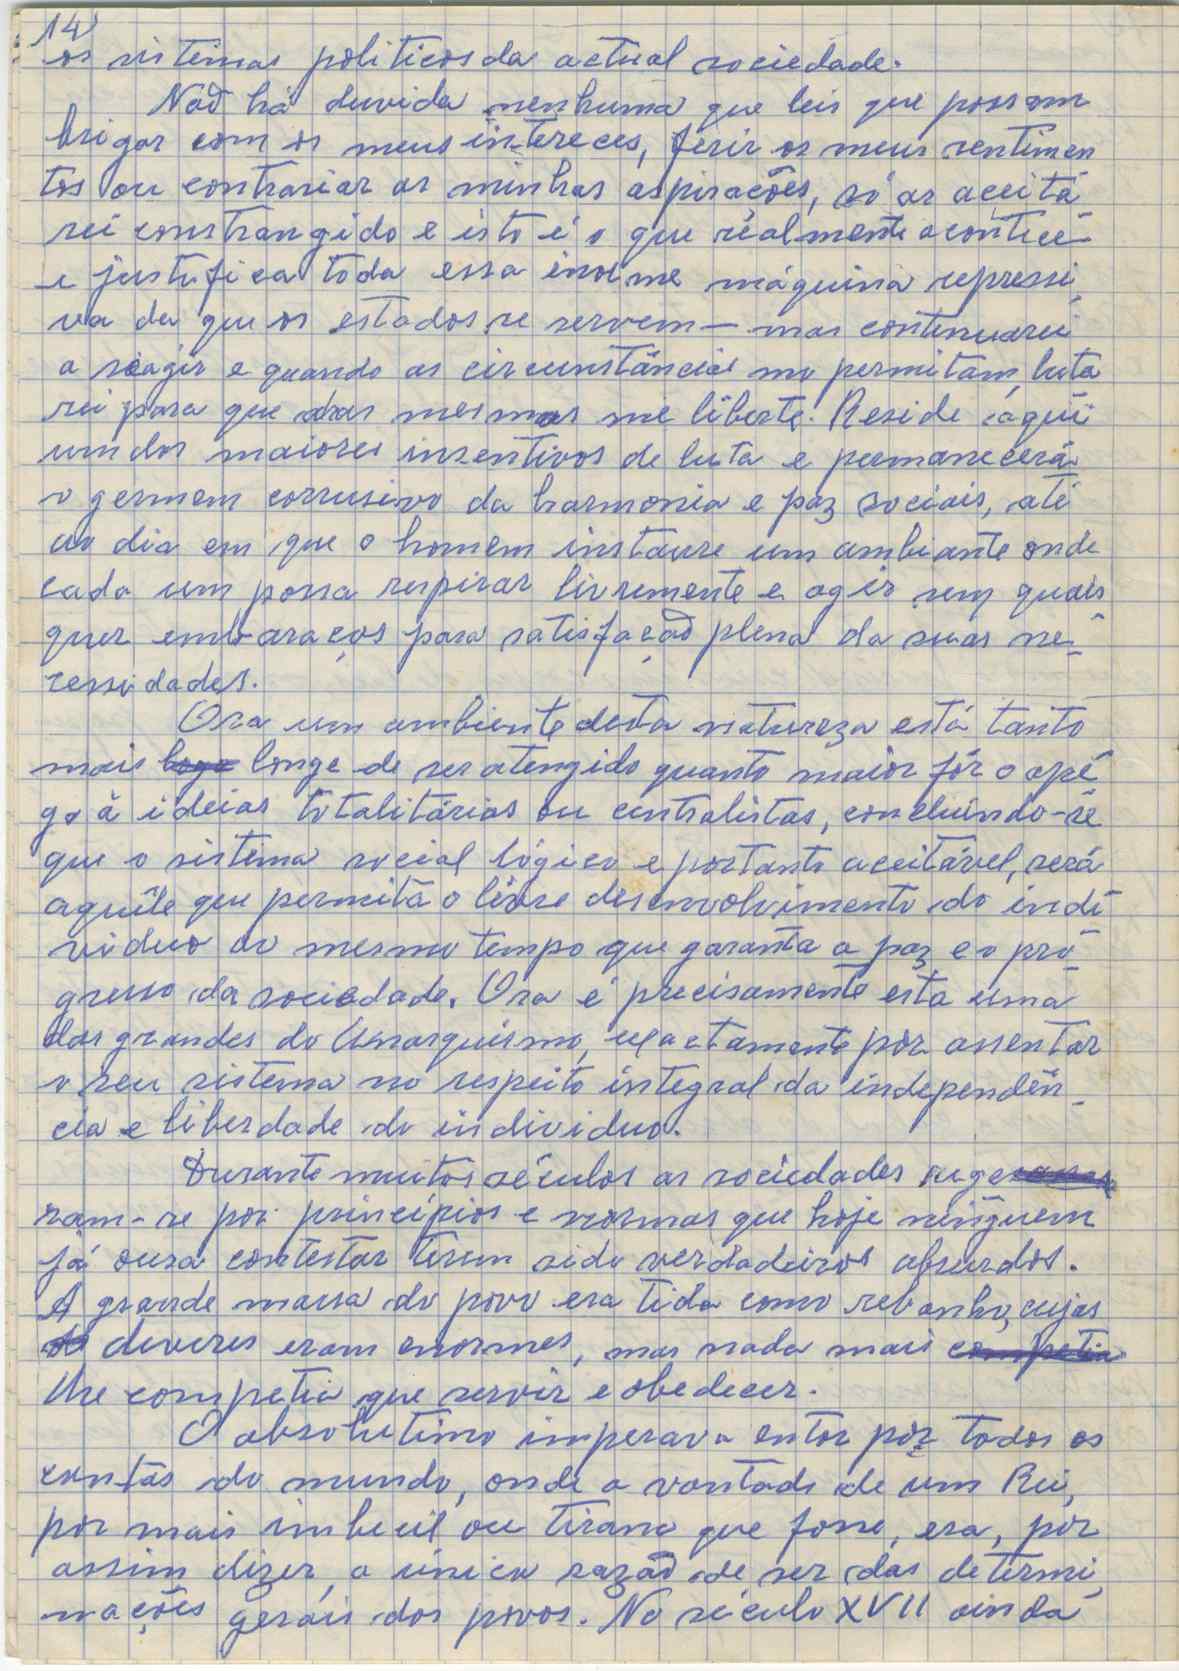 14
os sistemas politicos da actual sociedade.
Não há duvida nenhuma que leis que possam
brigar com os meus intereces, ferir os meus sentimen
tos ou contrariar as minhas aspirações, só as aceita
rei constrangido e isto é o que realmente acontece
e justifica toda essa enorme máquina repressi,
va de que os estados se servem — mas continuarei
a reagir e quando as circunstâncias mo permitam, luta
rei para que das mesmas me liberte. Reside aqui
um dos maiores insentivos de luta e permanecerá
o germem corrusivo da harmonia e paz sociais, até
ao dia em que o homem instaure um ambiante onde
cada um possa respirar livremente e agir sem quais
quer embaraços para satisfação plena da suas ne-
cessidades.
Ora um ambiente desta natureza está tanto
mais longe de ser atengido quanto maior fôr o apê
go á ideias totalitárias ou centralistas, concluindo-se
que o sistema social lógico e portanto aceitável, será
aquêle que permita o livre desenvolvimento do indi
viduo ao mesmo tempo que garanta a paz e o pro-
gresso da sociedade. Ora é precisamente esta uma
das grandes do Anarquismo, exactamente por assentar
o seu sistema no respeito integral da independên-
cia e liberdade do individuo.
Durante muitos séculos as sociedades rege
ram-se por principios e normas que hoje ninguem
já ousa contestar terem sido verdadeiros absurdos.
A grande massa do povo era tida como rebanho, cujos
deveres eram enormes, mas nada mais competia
lhe competia que servir e obedecer.
O absolutimo imperava entor por todos os
cantos do mundo, onde a vontade de um Rei,
por mais imbecil ou tirano que fosse, era, por
assim dizer, a única razão de ser das determi,
nações gerais dos povos. No século XVII ainda